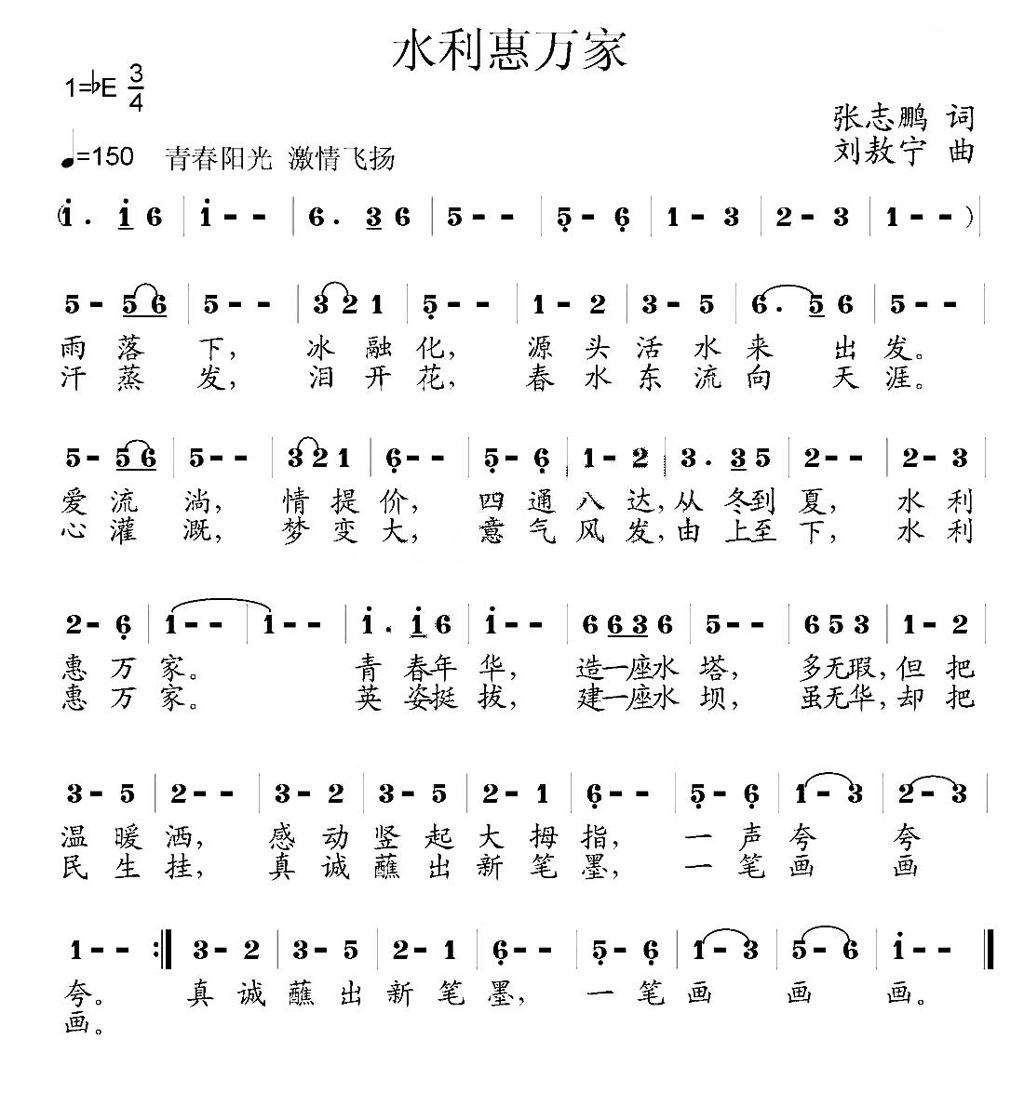 水利惠万家
1=♭E 3/4
张志鹏 词
♩=150 青春阳光 激情飞扬
刘敖宁 曲
(i . i 6 | i - - | 6 . 3 6 | 5 - - | 5̣ - 6̣ | 1 - 3 | 2 - 3 | 1 - - )
5 - 5 6 | 5 - - | 3 2 1 | 5̣ - - | 1 - 2 | 3 - 5 | 6 . 5 6 | 5 - - |
雨 落 下, 冰 融 化, 源 头 活 水 来 出 发。
汗 蒸 发, 泪 开 花, 春 水 东 流 向 天 涯。
5 - 5 6 | 5 - - | 3 2 1 | 6̣ - - | 5̣ - 6̣ | 1 - 2 | 3 . 3 5 | 2 - - | 2 - 3
爱 流 淌, 情 提 价, 四 通 八 达, 从 冬到 夏, 水 利
心 灌 溉, 梦 变 大, 意 气 风 发, 由 上至 下, 水 利
2 - 6̣ | 1 - - | 1 - - | i . i 6 | i - - | 6 6 3 6 | 5 - - | 6 5 3 | 1 - 2 |
惠 万 家。 青 春年 华, 造一座水 塔, 多无瑕, 但 把
惠 万 家。 英 姿挺 拔, 建一座水 坝, 虽无华, 却 把
3 - 5 | 2 - - | 3 - 2 | 3 - 5 | 2 - 1 | 6̣ - - | 5̣ - 6̣ | 1 - 3 | 2 - 3 |
温 暖 洒, 感 动 竖 起 大 拇 指, 一 声 夸 夸
民 生 挂, 真 诚 蘸 出 新 笔 墨, 一 笔 画 画
1 - - :| 3 - 2 | 3 - 5 | 2 - 1 | 6̣ - - | 5̣ - 6̣ | 1 - 3 | 5 - 6 | i - - ‖
夸。 真 诚 蘸 出 新 笔 墨, 一 笔 画 画 画。
画。